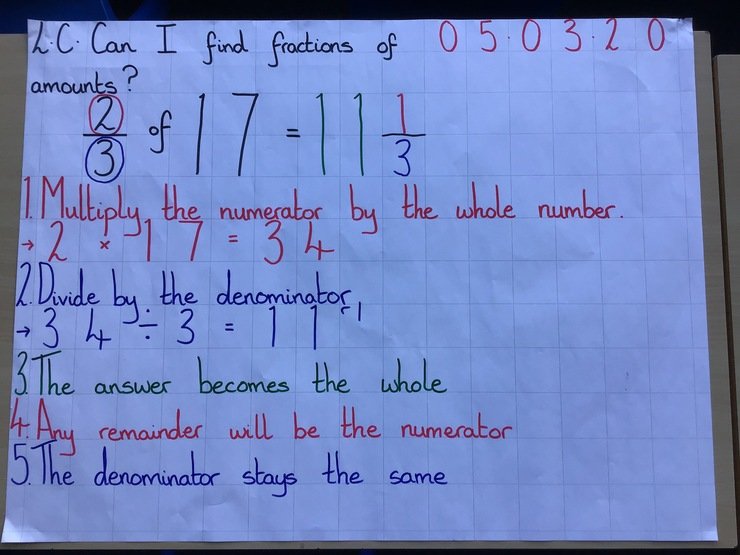 L.C. Can I find fractions of 05.03.20
amounts?
2/3 of 17 = 11 1/3
1. Multiply the numerator by the whole number.
→ 2 × 17 = 34
2. Divide by the denominator
→ 34 ÷ 3 = 11 r1
3. The answer becomes the whole
4. Any remainder will be the numerator
5. The denominator stays the same